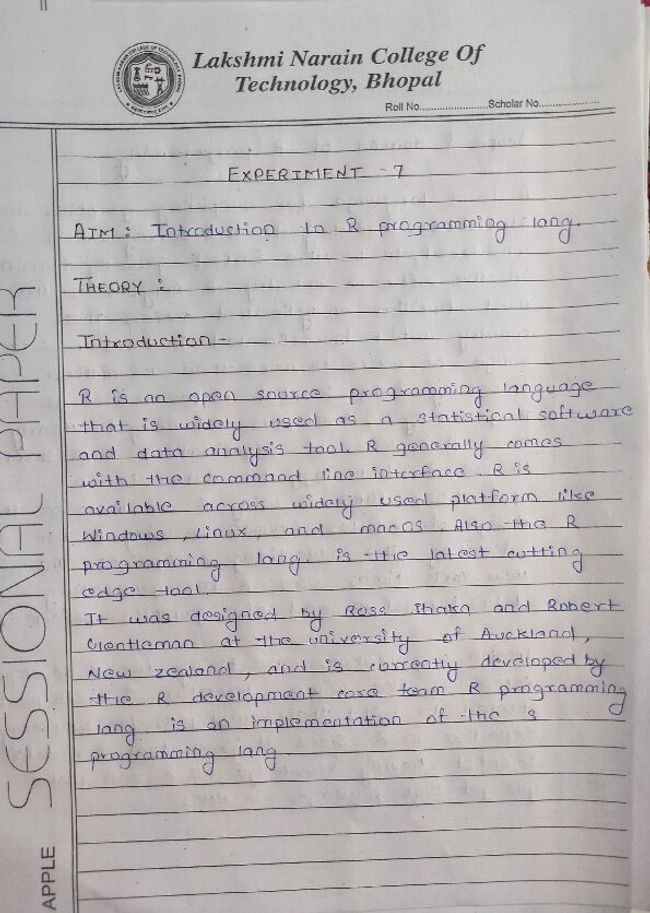 Lakshmi Narain College Of
Technology, Bhopal
Roll No.......................Scholar No.....................
EXPERIMENT - 7
AIM : Introduction to R programming lang.
THEORY :
Introduction -
R is an open source programming language
that is widely used as a statistical software
and data analysis tool. R generally comes
with the command line interface. R is
available across widely used platform like
Windows, Linux, and macos. Also the R
programming lang. is the latest cutting
edge tool.
It was designed by Ross Ihaka and Robert
Gentleman at the university of Auckland,
New zealand, and is currently developed by
the R development core team R programming
lang is an implementation of the s
programming lang
SESSIONAL PAPER
APPLE